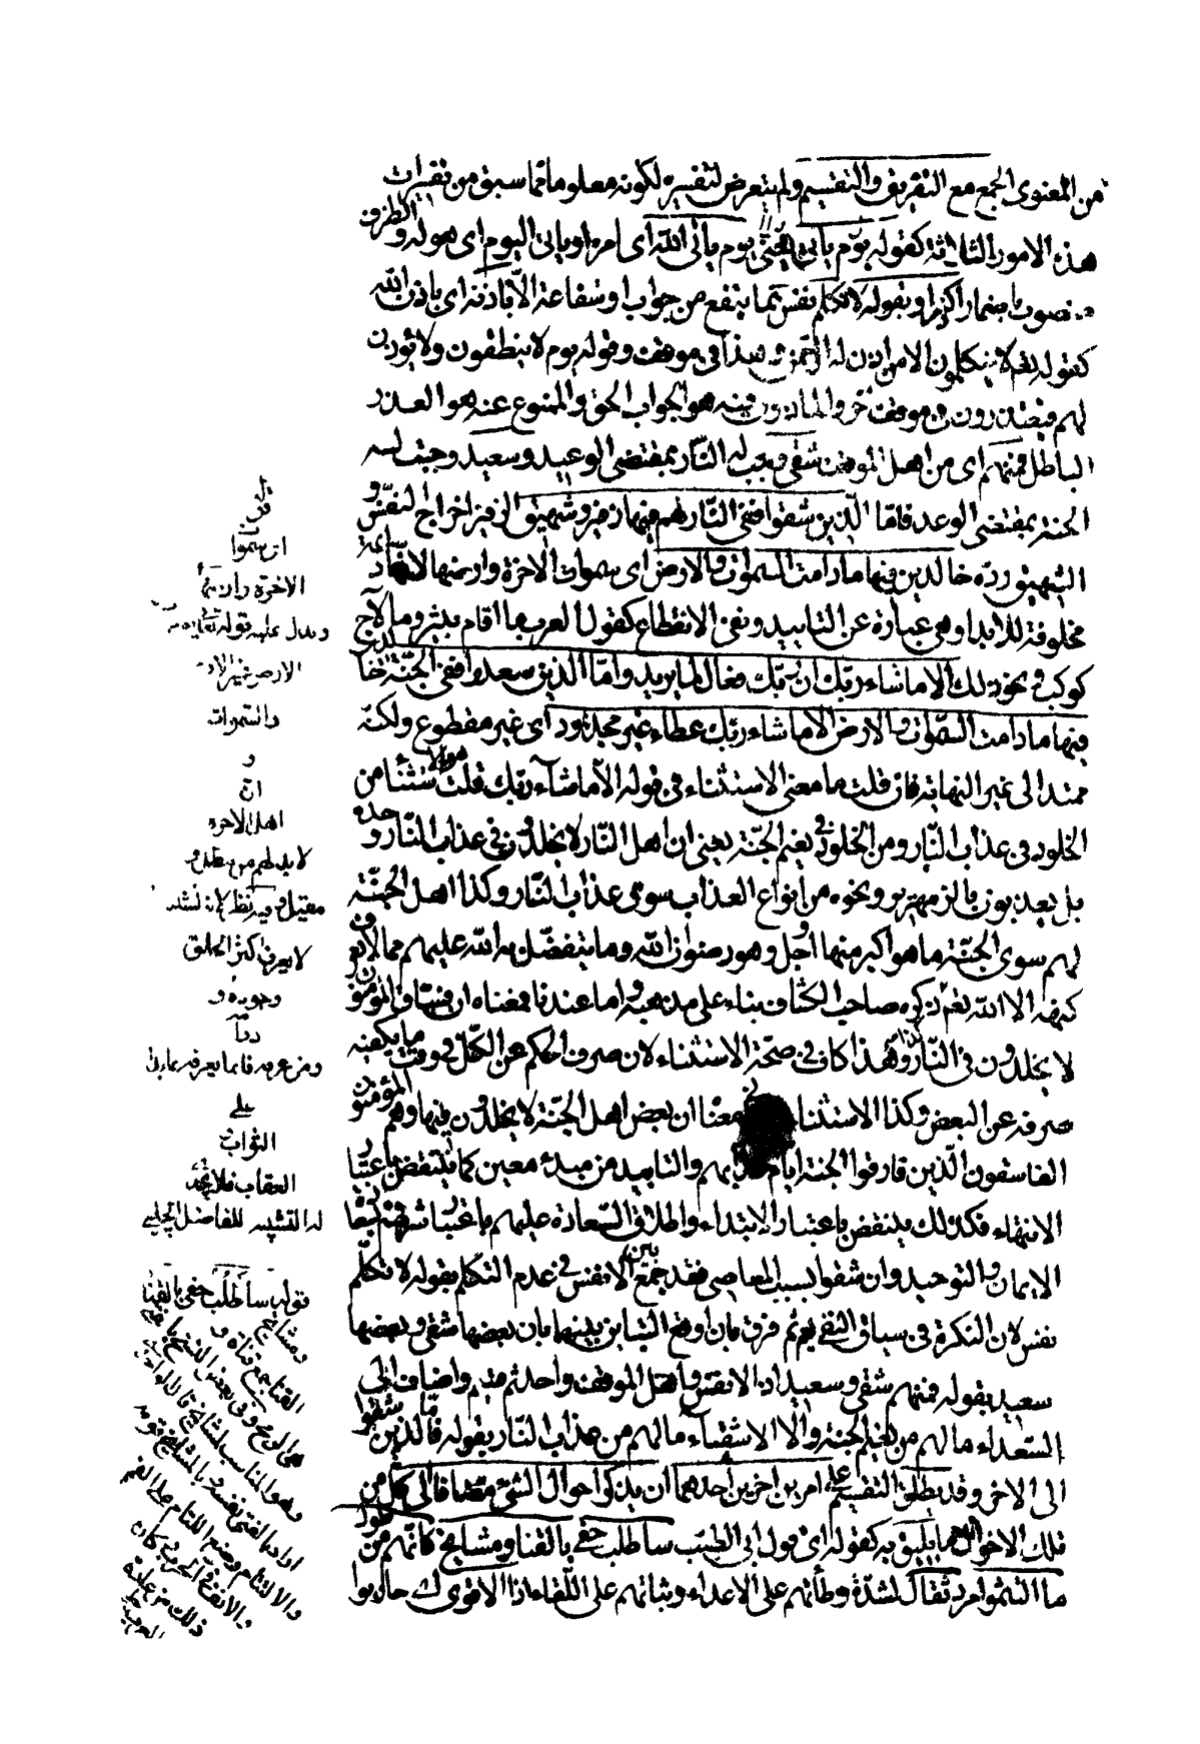 من المعنوى الجمع مع التفريق والتقسيم ولم يتعرض لتفسيره لكونه معلوما مما سبق من تفسيرات
هذه الامور الثلاثة كقوله يوم يأتى يعنى يوم يأتى الله اى امره او يأتى اليوم اى هوله والظرف
منصوب باضمار اذكر او بقوله لا تكلم نفس بما ينفع من جواب او شفاعة الا باذنه اى باذن الله
كقوله لا يتكلمون الا من اذن له الرحمن وهذا فى موقف وقوله يوم لا ينطقون ولا يؤذن
لهم فيعتذرون فى موقف آخر والمأذون فيه هو الجواب الحق والممنوع عنه هو العذر
الباطل فمنهم اى من اهل الموقف شقى وجب له النار بمقتضى الوعيد وسعيد وجبت له
الجنة بمقتضى الوعد فاما الذين شقوا ففى النار لهم فيها زفير وشهيق الزفير اخراج النفس و
الشهيق رده خالدين فيها ما دامت السموات والارض اى سموات الاخرة وارضها لانها
مخلوقة للابد او هى عبارة عن التأبيد ونفى الانقطاع كقول العرب ما اقام ثبير وما لاح
كوكب ونحو ذلك الا ما شاء ربك ان ربك فعال لما يريد واما الذين سعدوا ففى الجنة خالدين
فيها ما دامت السموات والارض الا ما شاء ربك عطاء غير مجذوذ اى غير مقطوع ولكنه
ممتد الى غير النهاية فان قلت ما معنى الاستثناء فى قوله الا ما شاء ربك قلت هو الاستثناء من
الخلود فى عذاب النار ومن الخلود فى نعيم الجنة يعنى ان اهل النار لا يخلدون فى عذاب النار وحده
بل يعذبون بالزمهرير ونحوه من انواع العذاب سوى عذاب النار وكذا اهل الجنة
لهم سوى الجنة ما هو اكبر منها واجل وهو رضوان الله وما يتفضل به الله عليهم مما لا يعرف
كنهه الا الله تعم ذكره صاحب الكشاف بناء على مذهبه واما عندنا فمعناه ان فساق المؤمنين
لا يخلدون فى النار وهذا كاف فى صحة الاستثناء لان صرف الحكم عن الكل فى وقت ما يكفيه
صرفه عن البعض وكذا الاستثناء معناه ان بعض اهل الجنة لا يخلدون فيها وهم المؤمنون
الفاسقون الذين فارقوا الجنة ايام عذابهم والتأبيد من مبدء معين كما ينتقض باعتبار
الانتهاء فكذلك ينتقض باعتبار الابتداء واطلاق السعادة عليهم باعتبار شرفهم بسعادة
الايمان والتوحيد وان شقوا بسبب المعاصى فقد جمع بين الانفس فى عدم التكلم بقوله لا تكلم
نفس لان النكرة فى سياق النفى يعم ثم فرق بان اوقع التباين بينها بان بعضها شقى وبعضها
سعيد بقوله فمنهم شقى وسعيد اذ الانفس واهل الموقف واحد ثم قسم واضاف الى
السعداء ما لهم من نعيم الجنة والى الاشقياء ما لهم من عذاب النار بقوله فاما الذين شقوا
الى الاخر وقد يطلق التقسيم على امرين اخرين احدهما ان يذكر احوال الشئ مضافا الى كل من
تلك الاحوال ما يليق به كقوله اى قول ابى الطيب ساطلب حقى بالقنا ومشايخ كانهم من طول
ما التثموا مرد ثقال لشدة وطأتهم على الاعداء وثباتهم على اللقاء اذا لاقوا اى حاربوا
الاخرة
ويدل عليه قوله
والسموات
و
ان
اهل الاخرة
لا بد لهم من مظل و
مقيل وفيه نظر لانه
لا يعرف اكثر الخلق
وجوده و
ومن عرفه فانما يعرفه بما يدل
على
الثواب
العقاب
له التشبيه للفاضل
قوله ساطلب حقى بالقنا
ومشايخ